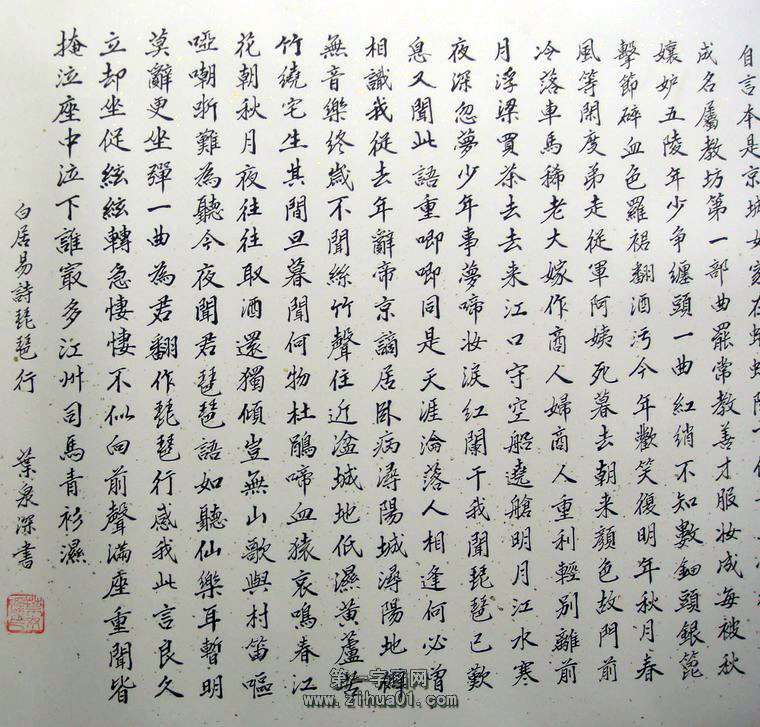 自言本是京城女家在
成名屬教坊第一部曲罷常教善才服妝成每被秋
孃妒五陵年少爭纏頭一曲紅綃不知數鈿頭銀篦
擊節碎血色羅裙翻酒污今年歡笑復明年秋月春
風等閑度弟走從軍阿姨死暮去朝来顏色故門前
冷落車馬稀老大嫁作商人婦商人重利輕別離前
月浮梁買茶去去来江口守空船遶艙明月江水寒
夜深忽夢少年事夢啼妝淚紅闌干我聞琵琶已歎
息又聞此語重唧唧同是天涯淪落人相逢何必曾
相識我從去年辭帝京謫居臥病潯陽城潯陽地僻
無音樂終歲不聞絲竹聲住近湓城地低濕黃蘆苦
竹繞宅生其間旦暮聞何物杜鵑啼血猿哀鳴春江
花朝秋月夜往往取酒還獨傾豈無山歌與村笛嘔
啞嘲哳難為聽今夜聞君琵琶語如聽仙樂耳暫明
莫辭更坐彈一曲為君翻作琵琶行感我此言良久
立却坐促絃絃轉急悽悽不似向前聲滿座重聞皆
掩泣座中泣下誰最多江州司馬青衫濕
白居易詩琵琶行 葉泉深書
第一字画网
www.zihua01.com